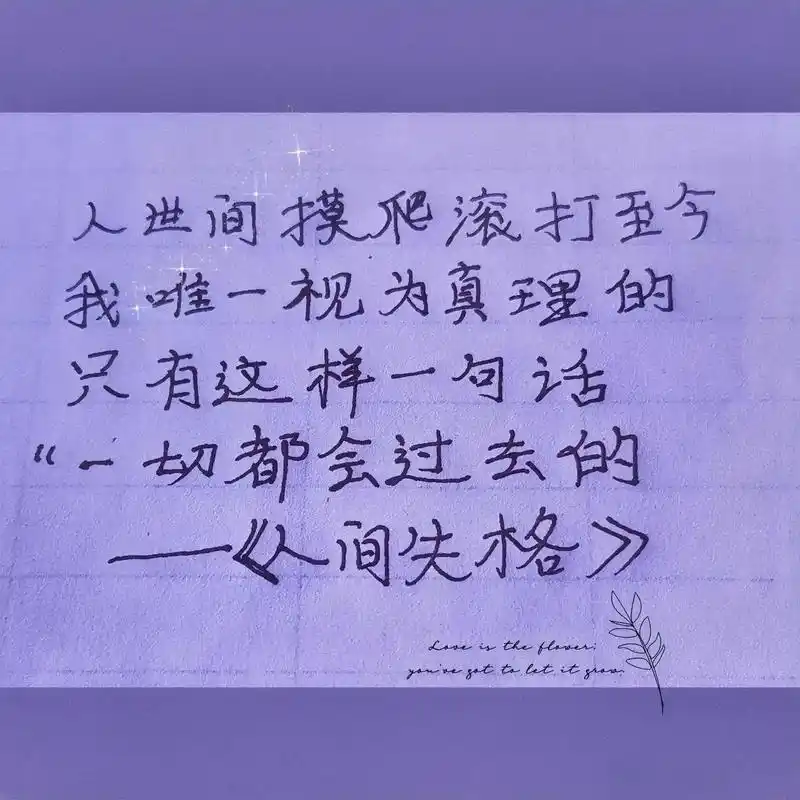 人世间摸爬滚打至今
我唯一视为真理的
只有这样一句话
“一切都会过去的
——《人间失格》
Love is the flower;
you've got to let it grow.